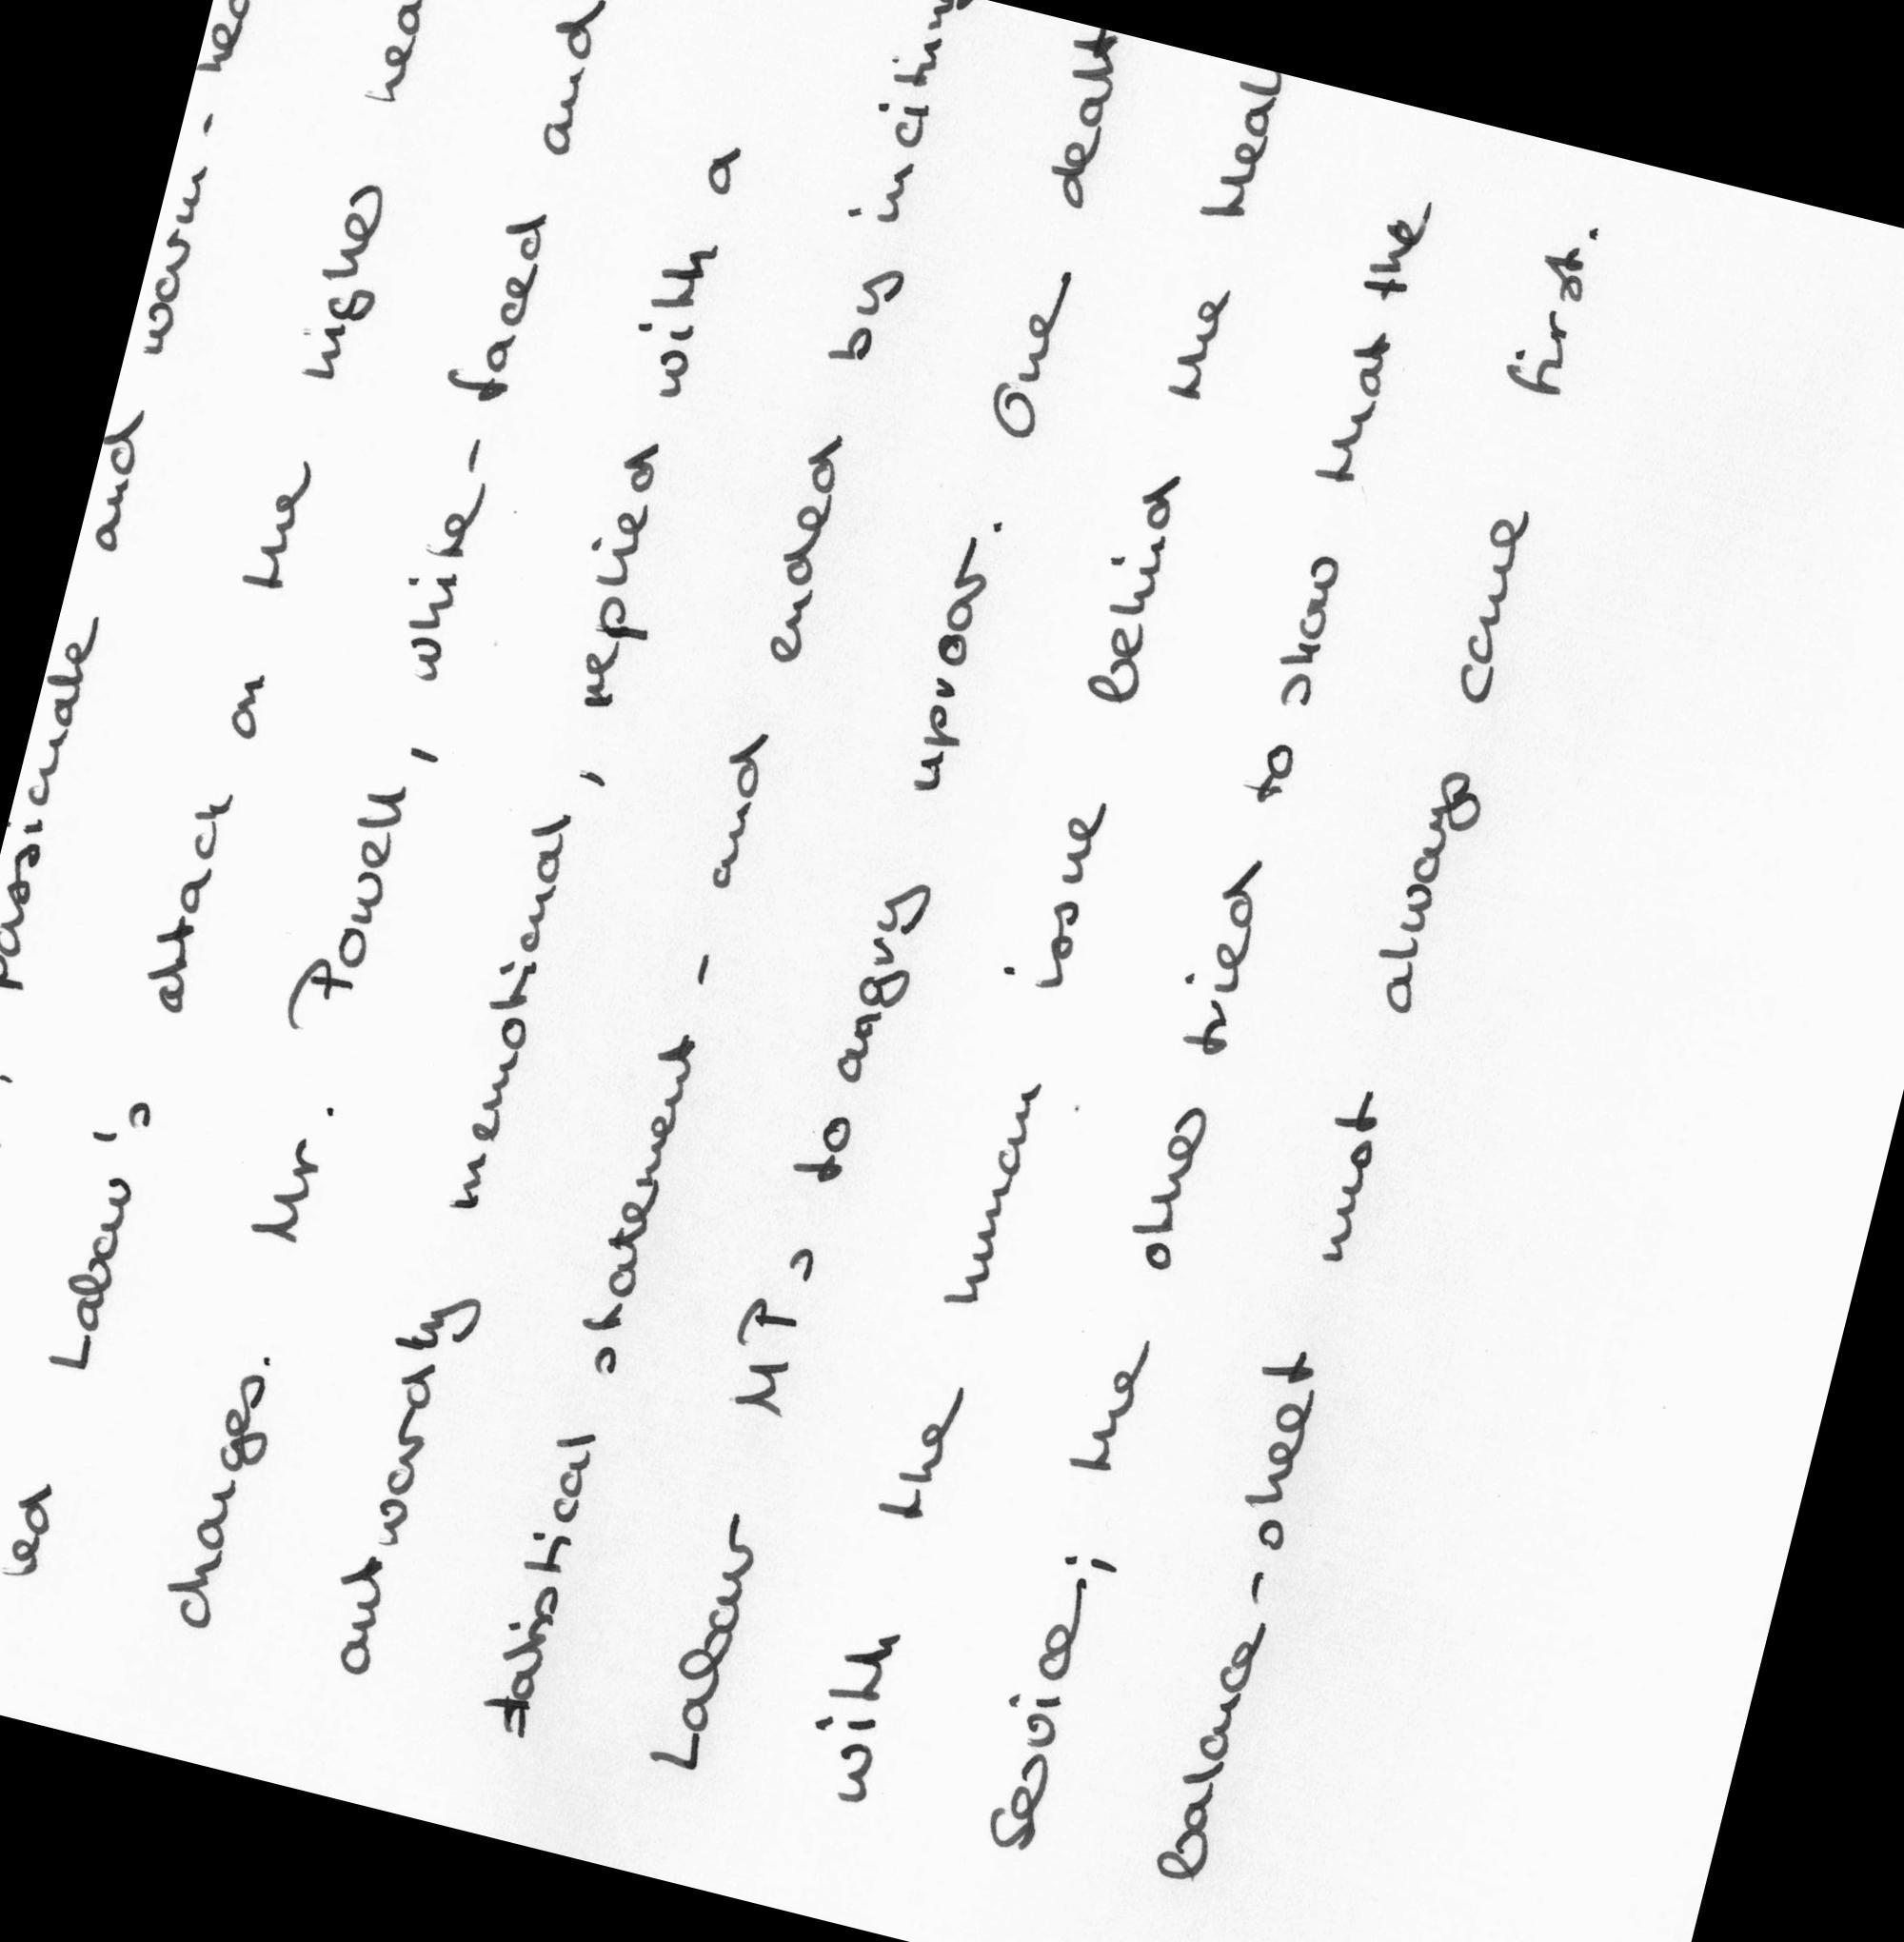 led , passionate and warm-hea
Labour's attack on the higher hea
charges. Mr. Powell, white-faced and
outwardly unemotional, replied with a
statistical statement - and ended by inciting
Labour MPs to angry uproar. One dealt
with the human issue behind the Heal
Service; the other tried to show that the
balance-sheet must always come first.